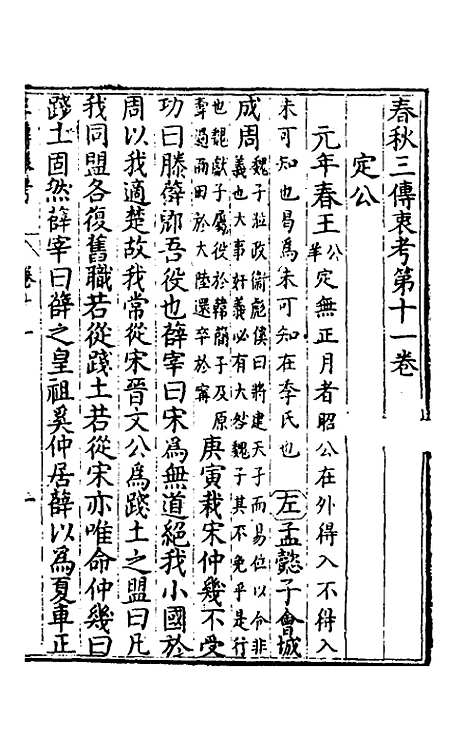 春秋三傳衷考第十一卷
定公
元年春王
公羊定無正月者昭公在外得入不得入
未可知也曷為未可知在季氏也
左孟懿子會城
成周
魏子涖政衛彪傒曰將建天子而易位以令非
義也大事奸義必有大咎魏子其不免乎是行
也魏獻子屬役於韓簡子及原
壽過而田於大陸還卒於甯
庚寅栽宋仲幾不受
功曰滕薛郳吾役也薛宰曰宋為無道絕我小國於
周以我適楚故我常從宋晉文公為踐土之盟曰凡
我同盟各復舊職若從踐土若從宋亦唯命仲幾曰
踐土固然薛宰曰薛之皇祖奚仲居薛以為夏車正
卷十一